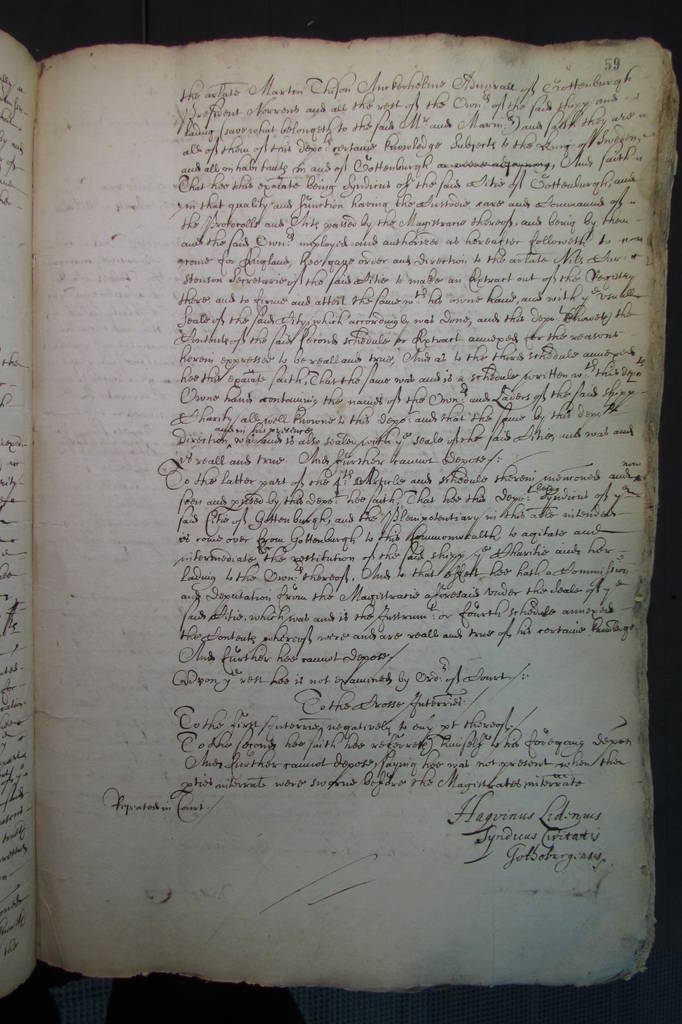 59
the arlate Martin Thison Anckerhelme Admirall of Gottenburgh
President Norrens and all the rest of the Own:rs of the said shipp and
lading (save what belongeth to the said Mr and Marin:rs) and saith they are
all of them of this depo:ts certaine knowledge Subjects to the King of Sweden,
and all inhabitants in and of Gottenburgh, And saith
That hee this exãiate being Syndicus of the said Citie of Gottenburgh, and
in that quality and function having the Custodie care and Command of
the Protocolls and Acts passed by the Magistracie thereof, and being by them
and the said Own:rs imployed and authorized as hereafter followeth to
come for England, hee gave order and direction to the arlate Nils
Secretarie of the said Citie to make an Extract out of the Registry
there and to firme and attest the same wth his owne hand, and with ye usuall
Seale of the said City, which accordingly was done, and this depo:t the
Contents of the said second schedule or Extract annexed for the reasons
herein expressed to be reall and true, And as to the third schedule annexed
hee this exãiate saith, That the same was and is a schedule written wth this depo:ts
Owne hand containing the names of the Own:rs and Laders of the said shipp
Charity, all well knowne to this depo:t and that the same by this depo:ts
direction and in his presence was and is also sealed with ye seale of the said Citie, and was and
is reall and true And further cannot depose/:
To the latter part of the 4:th Article and schedule therein menconed and now
seen and perused by this depo:t hee saith, That hee this depo:t being Syndicus of ye
said Citie of Gottenburgh, and the Plenipotentiary in this arlte intended
is come over from Gottenburgh to this Commonwealth to agitate and
intermediate the restitution of the said shipp ye Charitie and her
lading to the Own:rs thereof, And to that effect hee hath a Commission
and deputation from the Magistracie aforesaid under the Seale of ye
said Citie, which was and is the Instrum:t or fourth schedule annexed
the Contents whereof were and are reall and true of his certaine knowledge
And further hee cannot depose/
Upon ye rest hee is not examined by Ord:r of Court/:
To the Crosse Interries/
To the first Interrie, negatively to every pt thereof:/
To the second hee saith hee referreth himself to his foregoing deposn
And further cannot depose, saying hee was not present when the
pties interrate were sworne before the Magistrates interrate
Repeated in Court./
Haquinus Lidenius
Syndicus Civitatis
Gothoburgensis.